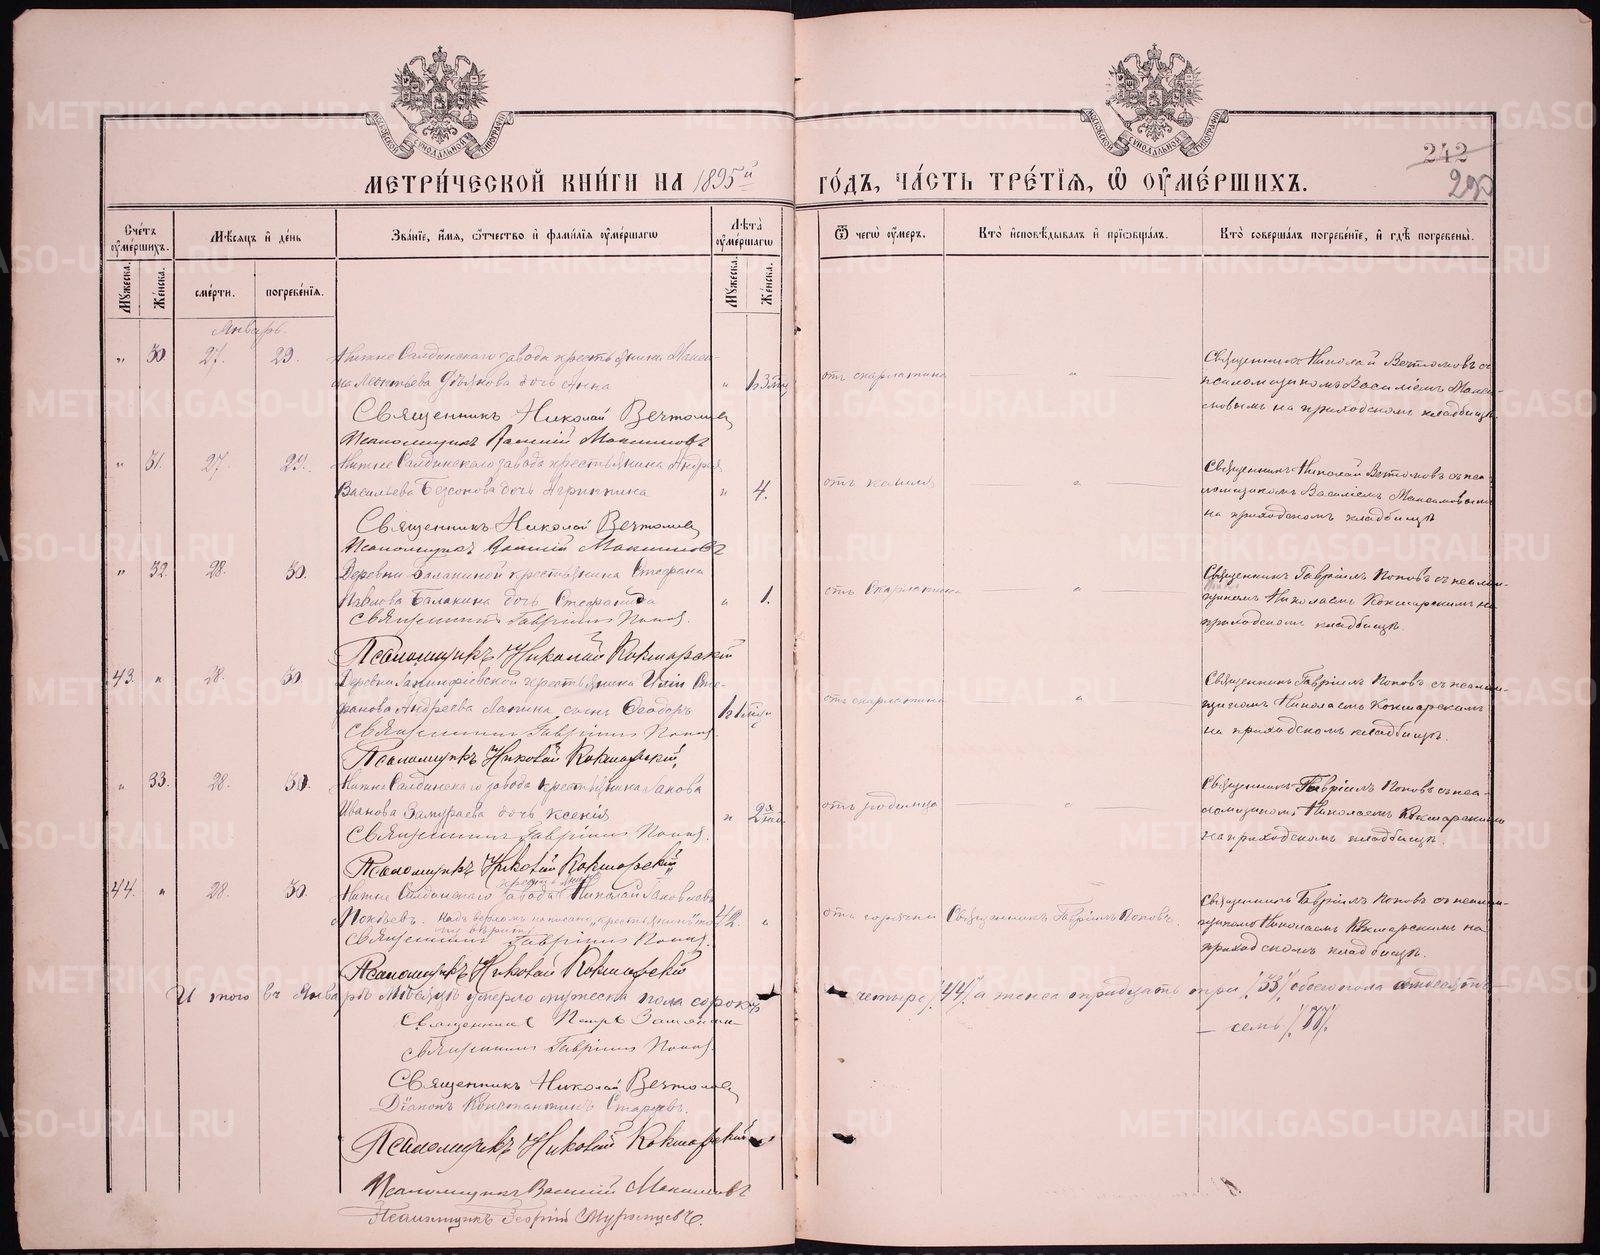 МЕТРИЧЕСКОЙ КНИГИ НА 1895й
ГОДЪ, ЧАСТЬ ТРЕТІЯ, Ѡ ОУМЕРШИХЪ.
242
Счетъ оумершихъ.
Мужеска.
Женска.
Мѣсяцъ и день
смерти.
погребенія.
Званіе, имя, отчество и фамилія оумершаго
Лѣта оумершаго
Мужеска.
Женска.
Ѿ чего оумеръ.
Кто исповѣдывалъ и пріобщалъ.
Кто совершалъ погребеніе, и гдѣ погребены.
Январь.
" 30 27. 29. Нижне Салдинскаго завода крестьянина Макси-
ма Леонтьева дочь Анна " отъ скарлатина "
Священникъ Николай Вечтомовъ съ
псаломщикомъ Василіемъ Макси-
мовымъ на приходскомъ кладбищѣ
Священникъ Николай Вечтомовъ
Псаломщикъ Василій Максимовъ
" 31. 27. 29. Нижне Салдинскаго завода крестьянина Андрея
Васильева дочь Агриппина " 4. отъ кашля "
Священникъ Николай Вечтомовъ съ пса-
ломщикомъ Василіемъ Максимовымъ
на приходскомъ кладбищѣ
Священникъ Николай Вечтомовъ
Псаломщикъ Василій Максимовъ
" 32. 28. 30. Деревни Балакиной крестьянина Стефана
Павлова Балакина дочь Стефанида " 1. отъ скарлатина "
Священникъ Гавріилъ Поповъ съ псалом-
щикомъ Николаемъ Кокшарскимъ на
приходскомъ кладбищѣ.
Священникъ Гавріилъ Поповъ.
Псаломщикъ Николай Кокшарскій
43. " 28. 30. Деревни крестьянина Иліи Сте-
фанова Андреева сынъ Ѳеодоръ отъ скарлатина "
Священникъ Гавріилъ Поповъ съ псалом-
щикомъ Николаемъ Кокшарскимъ
на приходскомъ кладбищѣ.
Священникъ Гавріилъ Поповъ.
Псаломщикъ Николай Кокшарскій.
" 33. 28. 30. Нижне Салдинскаго завода крестьянина Іакова
Иванова Замураева дочь Ксенія " отъ родимца "
Священникъ Гавріилъ Поповъ съ пса-
ломщикомъ Николаемъ Кокшарскимъ
на приходскомъ кладбищѣ.
Священникъ Гавріилъ Поповъ.
Псаломщикъ Николай Кокшарскій
44. " 28. 30. Нижне Салдинскаго завода Николай Іаковлевъ
42. " отъ горячки Священникъ Гавріилъ Поповъ.
Священникъ Гавріилъ Поповъ съ псалом-
щикомъ Николаемъ Кокшарскимъ на
приходскомъ кладбищѣ.
Священникъ Гавріилъ Поповъ.
Псаломщикъ Николай Кокшарскій
И того въ Январѣ мѣсяцѣ умерло мужеска пола сорокъ
четыре /44/ а женска тридцать три /33/ обоего пола семьдесятъ
— семь /77/.
Священникъ Петръ
Священникъ Гавріилъ Поповъ.
Священникъ Николай Вечтомовъ
Діаконъ Константинъ Старцевъ.
Псаломщикъ Николай Кокшарскій
Псаломщикъ Василій Максимовъ
Псаломщикъ Георгій Мурзинцевъ.
METRIKI.GASO-URAL.RU